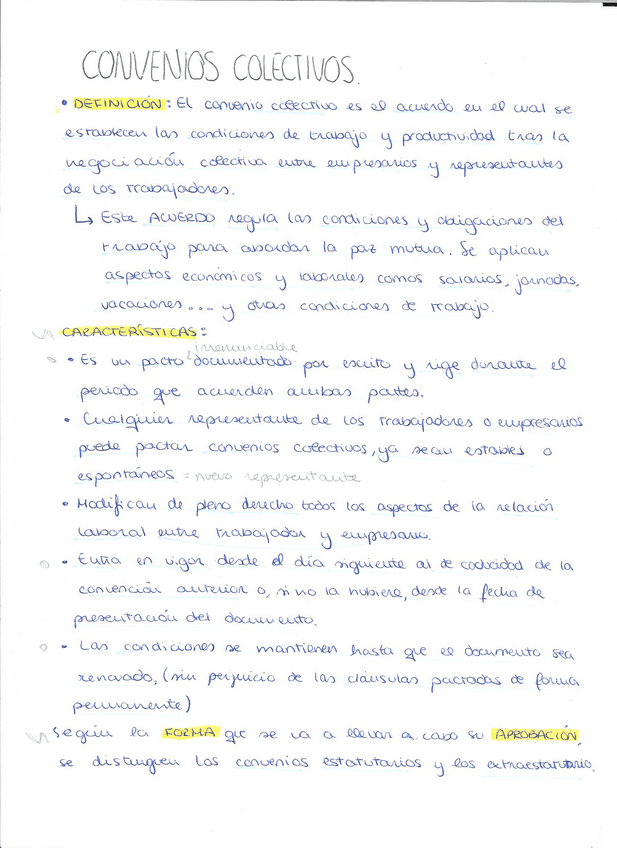 CONVENIOS COLECTIVOS.
• DEFINICIÓN: El convenio colectivo es el acuerdo en el cual se
establecen las condiciones de trabajo y productividad tras la
negociación colectiva entre empresarios y representantes
de los trabajadores.
↳ Este ACUERDO regula las condiciones y obligaciones del
trabajo para abordar la paz mutua. Se aplican
aspectos económicos y laborales comos salarios, jornadas,
vacaciones.... y otras condiciones de trabajo.
CARACTERÍSTICAS:
irrenunciable
• Es un pacto documentado por escrito y rige durante el
periodo que acuerden ambas partes.
• Cualquier representante de los trabajadores o empresarios
puede pactar convenios colectivos, ya sean estables o
espontáneos = nuevo representante
• Modifican de pleno derecho todos los aspectos de la relación
laboral entre trabajador y empresario.
• Entra en vigor desde el día siguiente al de caducidad de la
convención anterior o, si no la hubiere, desde la fecha de
presentación del documento.
• Las condiciones se mantienen hasta que el documento sea
renovado, (sin perjuicio de las cláusulas pactadas de forma
permanente)
Según la FORMA que se va a llevar a cabo su APROBACIÓN,
se distinguen los convenios estatutarios y los extraestatutario.